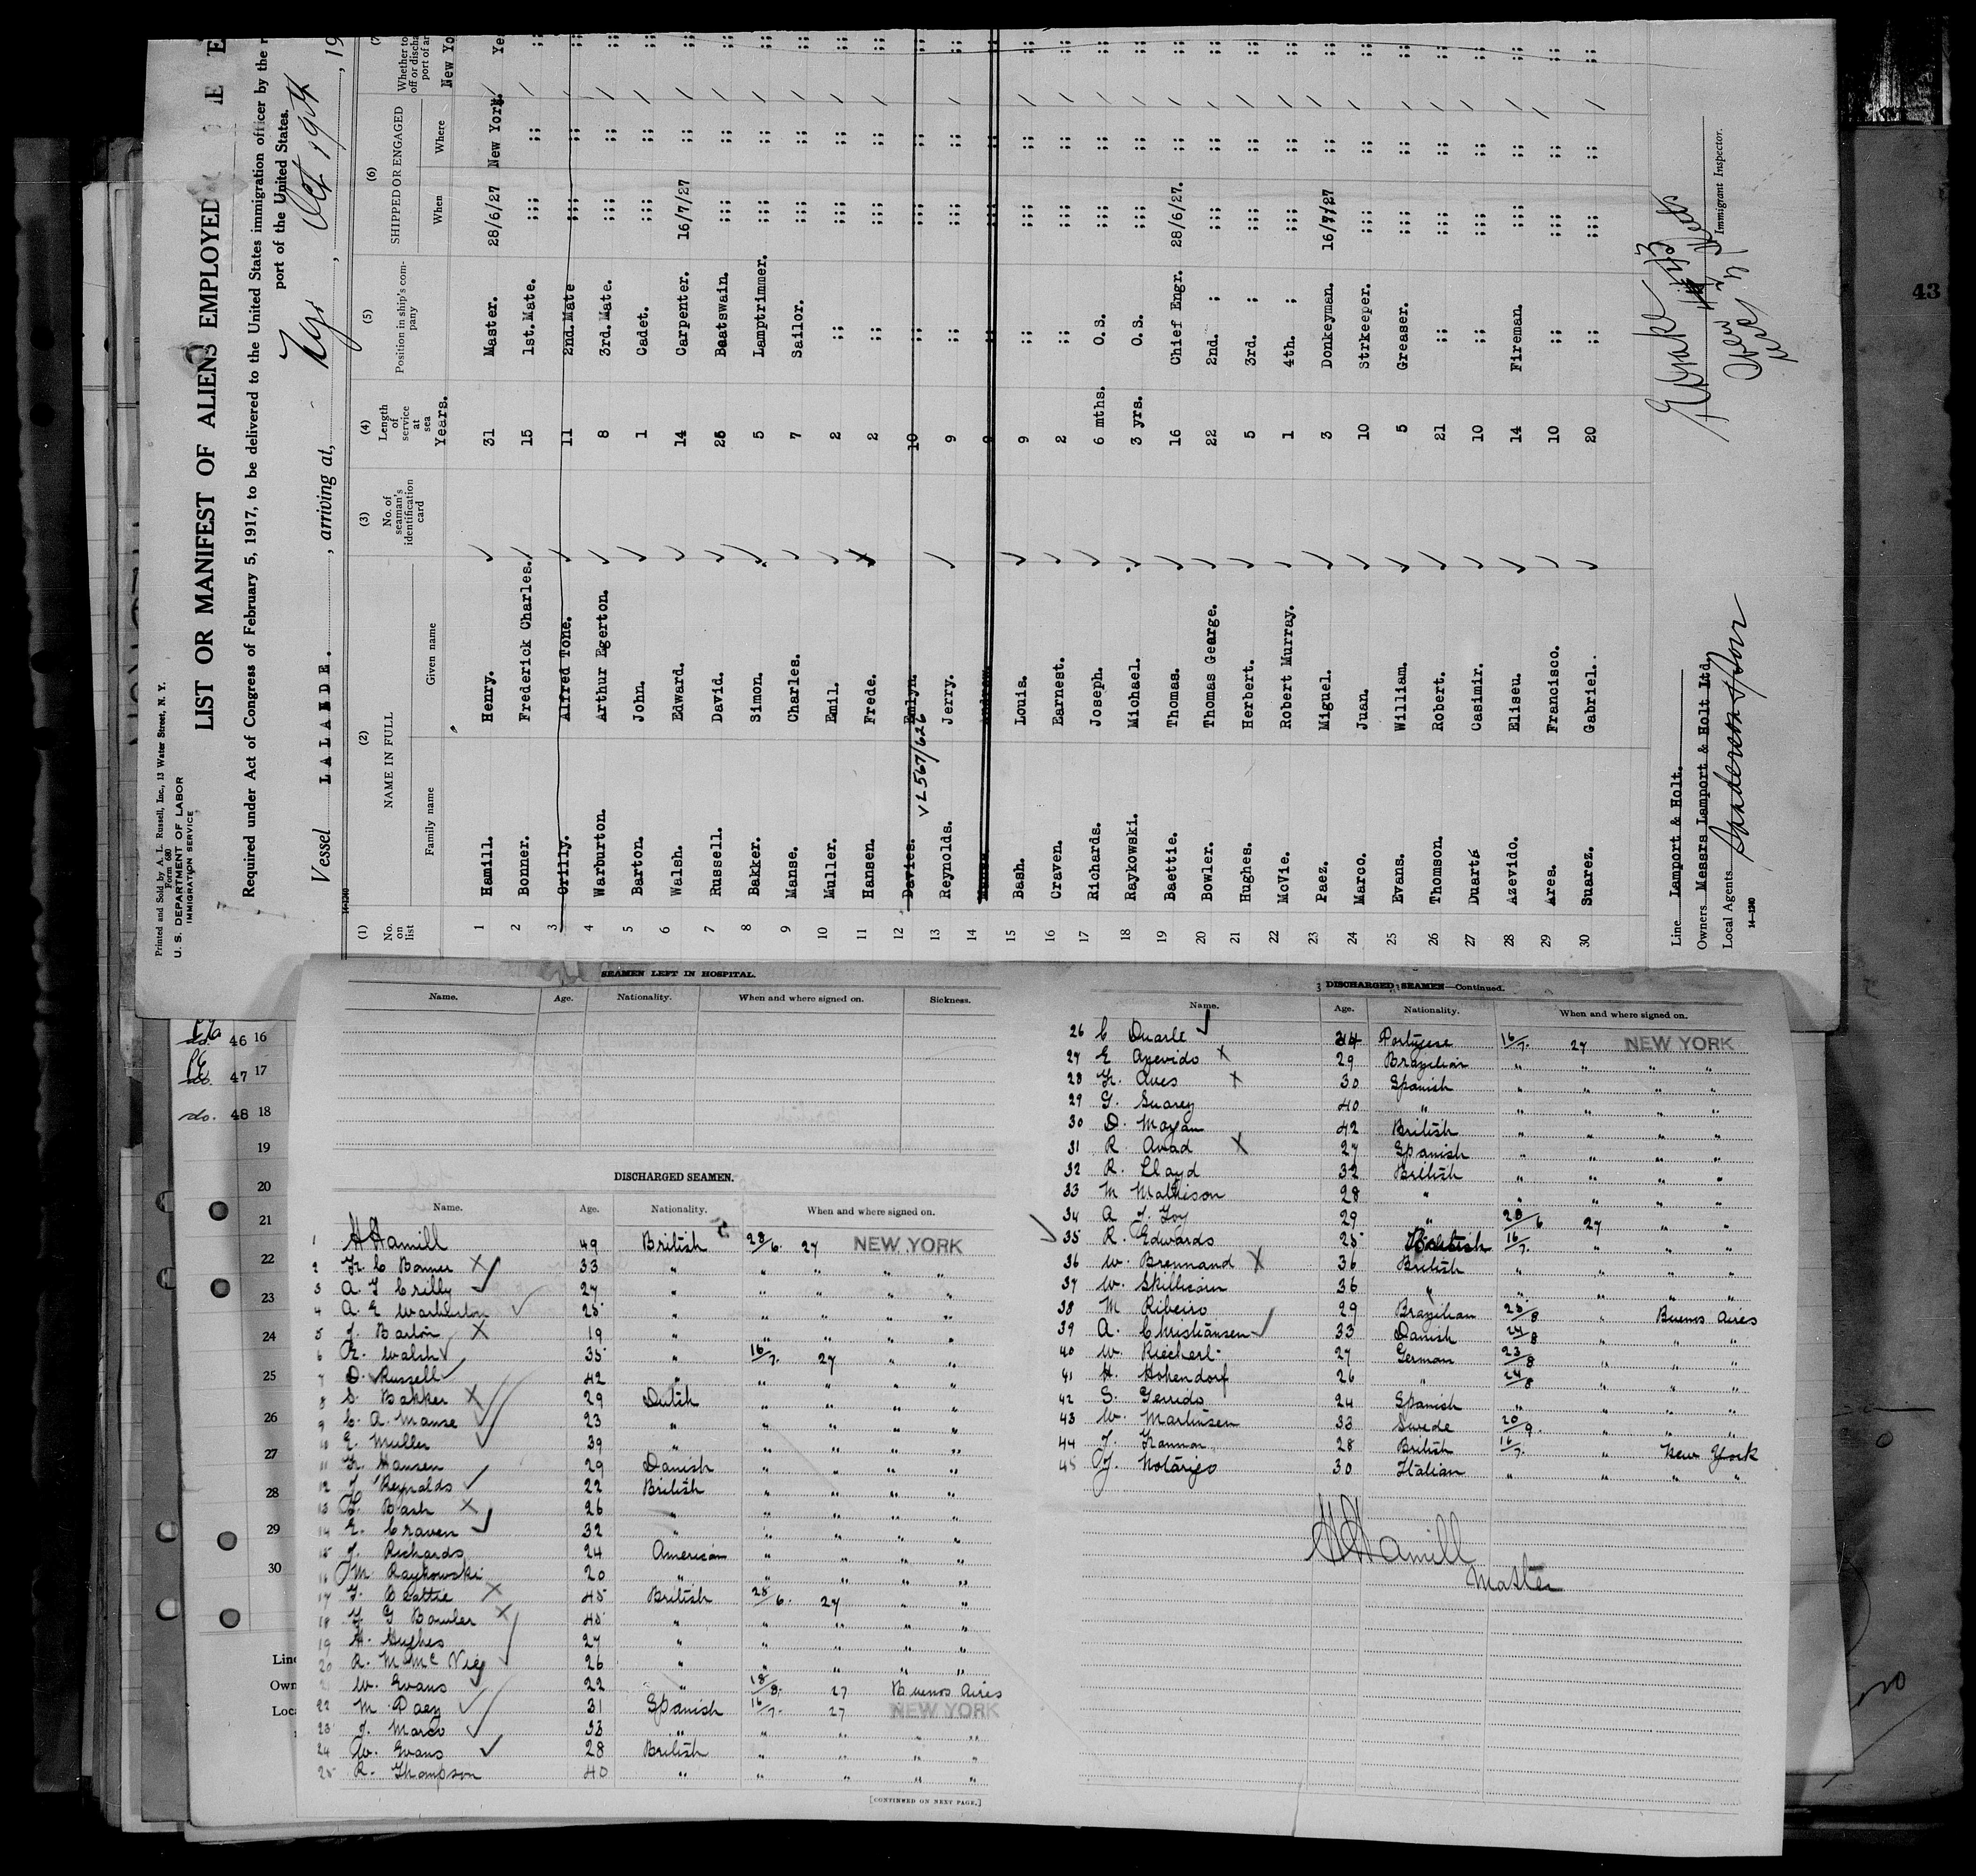 Printed and Sold by A. L. Russell, Inc., 13 Water Street, N. Y.
Form 680
U. S. DEPARTMENT OF LABOR
IMMIGRATION SERVICE
LIST OR MANIFEST OF ALIENS EMPLOYED
Required under Act of Congress of February 5, 1917, to be delivered to the United States immigration officer by the
port of the United States.
Vessel LALANDE. , arriving at, , Oct 19th , 19
14-1240
(1) (2) (3) (4) (5) (6) (7)
No. on list NAME IN FULL No. of seaman's identification card Length of service at sea Position in ship's company SHIPPED OR ENGAGED Whether to
off or discha
port of ar
Family name Given name Years. When Where New Yo
1 Hamill. Henry. 31 Master. 28/6/27 New York. Ye
2 Bonner. Frederick Charles. 15 1st.Mate. ;;; ;; ;;
3 Crilly. Alfred Tone. 11 2nd.Mate ;;; ;; ;;
4 Warburton. Arthur Egerton. 8 3rd.Mate. ;;; ;; ;;
5 Barton. John. 1 Cadet. ;;; ;; ;;
6 Walsh. Edward. 14 Carpenter. 16/7/27 ;; ;;
7 Russell. David. 26 Boatswain. ;;; ;; ;;
8 Bakker. Simon. 5 Lamptrimmer. ;;; ;; ;;
9 Manse. Charles. 7 Sailor. ;;; ;; ;;
10 Muller. Emil. 2 ;; ;;; ;; ;;
11 Hansen. Frede. 2 ;; ;;; ;; ;;
12 Davies. Emlyn. 10 ;; ;;; ;; ;;
v2567/626
13 Reynolds. Jerry. 9 ;; ;;; ;; ;;
14 Andrew. 9 ;; ;;; ;; ;;
15 Bash. Louis. 9 ;; ;;; ;; ;;
16 Craven. Earnest. 2 ;; ;;; ;; ;;
17 Richards. Joseph. 6 mths. O.S. ;;; ;; ;;
18 Raykowski. Michael. 3 yrs. O.S. ;;; ;; ;;
19 Baettie. Thomas. 16 Chief Engr. 28/6/27. ;; ;;
20 Bowler. Thomas George. 22 2nd. ; ;;; ;; ;;
21 Hughes. Herbert. 5 3rd. ; ;;; ;; ;;
22 McVie. Robert Murray. 1 4th. ; ;;; ;; ;;
23 Paez. Miguel. 3 Donkeyman. 16/7/27 ;; ;;
24 Marco. Juan. 10 Strkeeper. ;;; ;; ;;
25 Evans. William. 5 Greaser. ;;; ;; ;;
26 Thomson. Robert. 21 ;; ;;; ;; ;;
27 Duarté Casimir. 10 ;; ;;; ;; ;;
28 Azevido. Eliseu. 14 Fireman. ;;; ;; ;;
29 Ares. Francisco. 10 ;; ;;; ;; ;;
30 Suarez. Gabriel. 20 ;; ;;; ;; ;;
Line Lamport & Holt.
Owners Messrs Lamport & Holt Ltd.
Local Agents Sanderson & Son
Immigrant Inspector.
14-1240
43
do. 46 16
do. 47 17
do. 48 18
19
20
21
22
23
24
25
26
27
28
29
30
Line
Own
Loca
SEAMEN LEFT IN HOSPITAL.
Name. Age. Nationality. When and where signed on. Sickness.
DISCHARGED SEAMEN.
Name. Age. Nationality. When and where signed on.
1 H Hamill 49 British 28/6. 27 NEW YORK
2 Fr C Bonner 33 " " " " "
3 A. T. Crilly 27 " " " " "
4 A. E Warburton 25 " " " " "
5 J. Barton 19 " " " " "
6 E. Walsh 35 " 16/7. 27 " "
7 D. Russell 42 " " " " "
8 S. Bakker 29 Dutch " " " "
9 C. A. Manse 23 " " " " "
10 E. Muller 39 " " " " "
11 Fr. Hansen 29 Danish " " " "
12 J Reynolds 22 British " " " "
13 L. Bash 26 " " " " "
14 E. Craven 32 " " " " "
15 J. Richards 24 American " " " "
16 M. Raykowski 20 " " " " "
17 T. Beattie 45 British 28/6. 27 " "
18 T. G Bowler 45 " " " " "
19 H. Hughes 27 " " " " "
20 R. M Mc Vie 26 " " " " "
21 W. Evans 22 " 18/8. 27 Buenos Aires
22 M Paez 31 Spanish 16/7. 27 NEW YORK
23 J. Marco 33 " " " " "
24 W. Evans 28 British " " " "
25 R. Thompson 40 " " " " "
[CONTINUED ON NEXT PAGE.]
3
DISCHARGED SEAMEN—Continued.
Name. Age. Nationality. When and where signed on.
26 C Duarle 44 Portugese 16/7. 27 NEW YORK
27 E Azevido 29 Brazilian " " " "
28 Fr. Ares 30 Spanish " " " "
29 G. Suarez 40 " " " " "
30 D. Mozan 42 British " " " "
31 R. Avad 27 Spanish " " " "
32 R. Lloyd 32 British " " " "
33 M Mathison 28 " " " " "
34 A J. Foy 29 " 28/6 27 " "
35 R. Edwards 25 British 16/7. " " "
36 W. Brennand 36 British " " " "
37 W. Skillicorn 36 " " " " "
38 M Ribeiro 29 Brazilian 25/8 " Buenos Aires
39 A. Christiansen 33 Danish 24/8 " " "
40 W. Riecherl 27 German 23/8 " " "
41 H. Hohendorf 26 " 24/8 " " "
42 S. Gerrido 24 Spanish " " " "
43 W. Martinsen 33 Swede 20/9. " " "
44 J. Hannon 28 British 16/7. " New York
45 J. Notarigo 30 Italian " " " "
H Hamill
Master